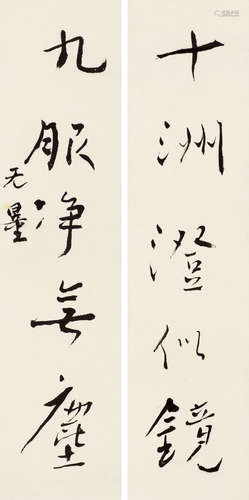 十洲澄似镜
九服净無塵
无量